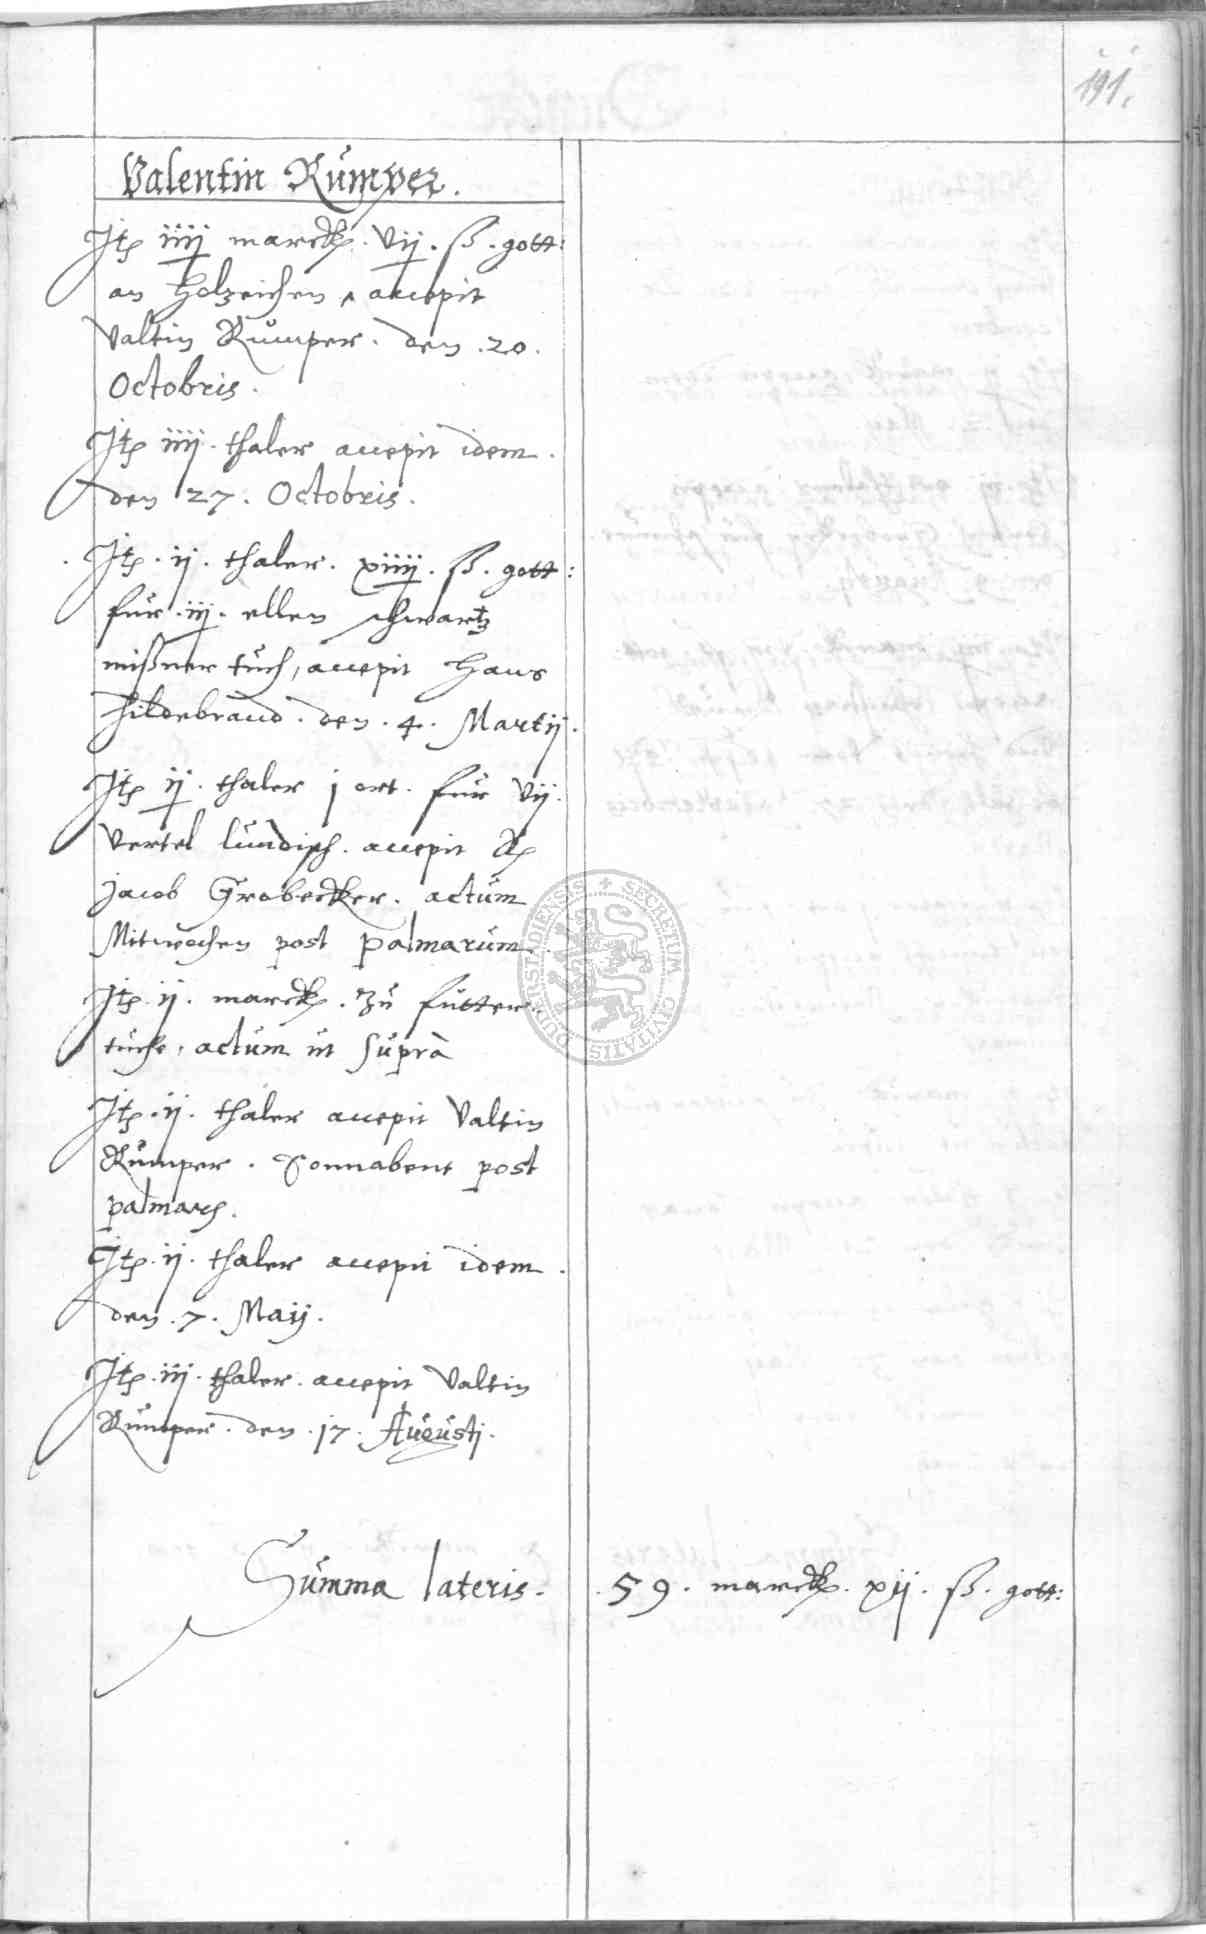 191.
Valentin Rumper.
Itp iiij marck. vij. ß. gott:
an holzeichen, accepit
Valtin Rumper. den .20.
Octobris.
Itp iiij. thaler accepit idem.
den 27. Octobris.
Itp. ij. thaler. xiiij. ß. gott:
fur .iij. ellen schwartz
mißner tuch, accepit Hans
Hildebrand. den .4. Martij.
Itp ij. thaler j ort. fur vij.
vertel lundisch. accepit
Jacob Grobecker. actum
Mitwochen post palmarum.
Itp. ij. marck. zu futter
tuche, actum ut supra
Itp. ij. thaler accepit Valtin
Rumper. Sonnabent post
palmarum.
Itp. ij. thaler accepit idem.
den .7. Maij.
Itp. iij. thaler. accepit Valtin
Rumper. den .17. Augusti.
Summa lateris. 59. marck. xij. ß. gott:
SECRETUM CIVITATIS DUDERSTADIENSIS